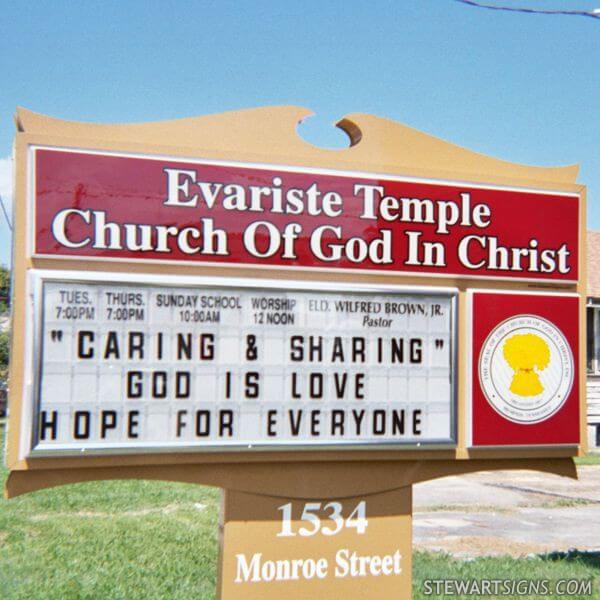 Evariste Temple
Church Of God In Christ
TUES. THURS. SUNDAY SCHOOL WORSHIP ELD. WILFRED BROWN, JR.
7:00PM 7:00PM 10:00AM 12 NOON Pastor
"CARING & SHARING"
GOD IS LOVE
HOPE FOR EVERYONE
1534
Monroe Street
STEWARTSIGNS.COM